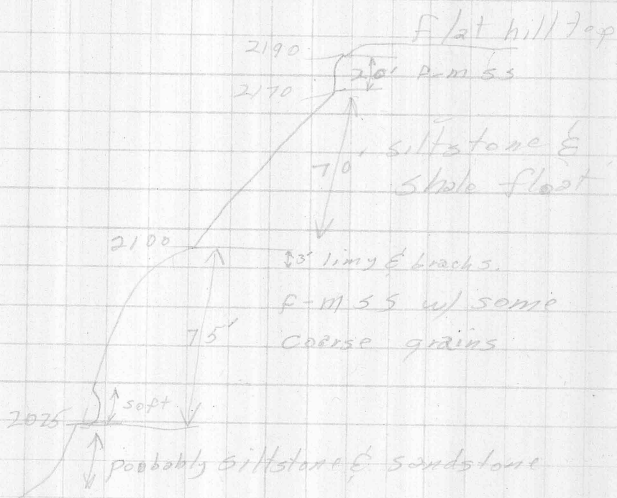 flat hilltop
2190
20' f-m ss
2170
siltstone &
70'
shale float
2100
3' limy & brachs.
f-m ss w/ some
75'
coarse grains
soft
2025
probably siltstone & sandstone